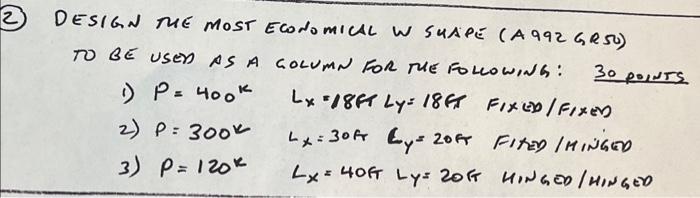 2 DESIGN THE MOST ECONOMICAL W SHAPE (A992 GR50)
TO BE USED AS A COLUMN FOR THE FOLLOWING: 30 POINTS
1) P = 400K Lx = 18FT Ly = 18FT FIXED/FIXED
2) P = 300K Lx = 30FT Ly = 20FT FIXED/HINGED
3) P = 120K Lx = 40FT Ly = 20FT HINGED/HINGED